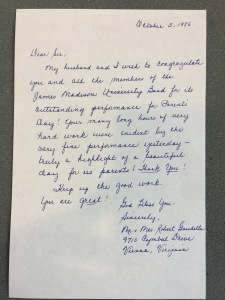 October 5, 1986
Dear Sir,
My husband and I wish to congratulate
you and all the members of the
James Madison University Band for its
outstanding performance for Parents
Day! Your many long hours of very
hard work were evident by the
very fine performance yesterday -
truly a highlight of a beautiful
day for us parents! Thank You!
Keep up the good work.
You are great!
God Bless You.
Sincerely,
Mr & Mrs Robert
9710 Cymbal Drive
Vienna, Virginia